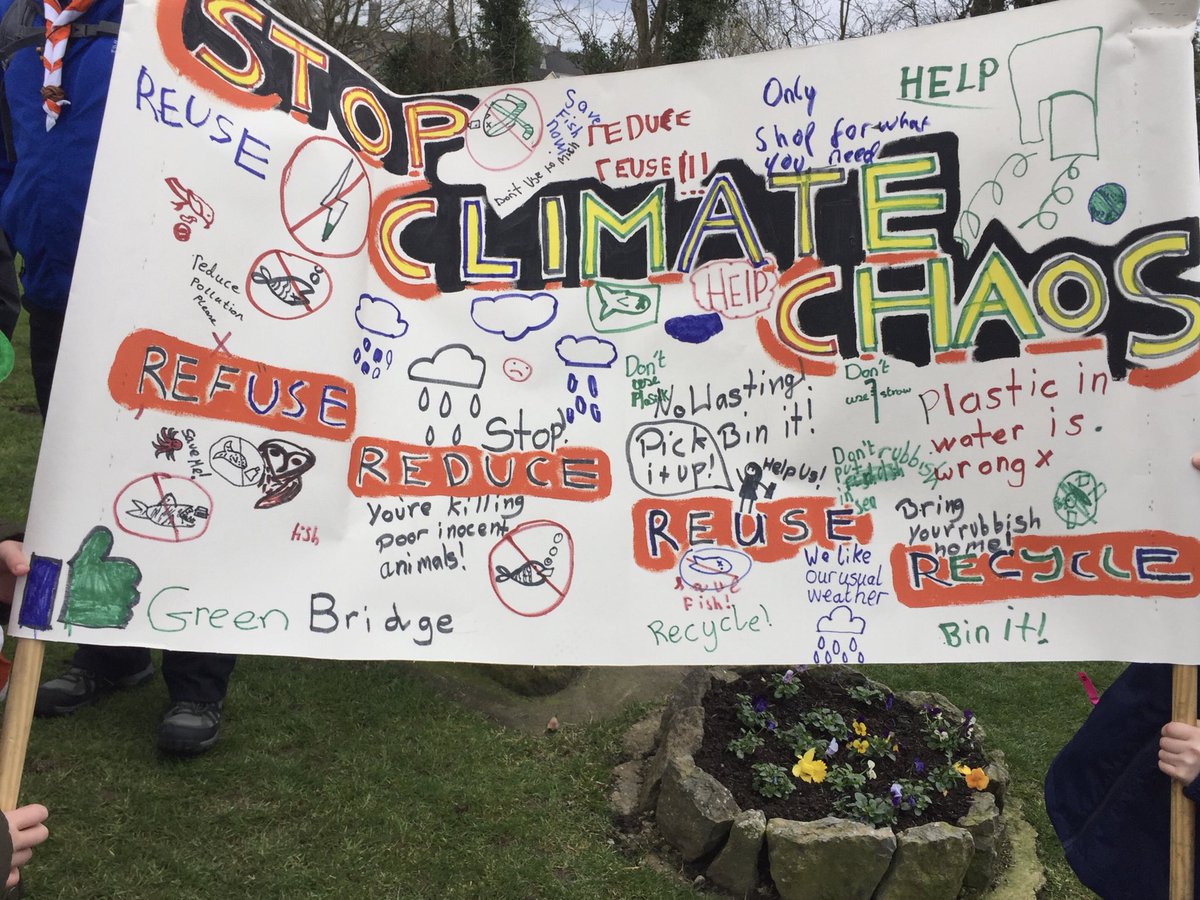 STOP
CLIMATE
CHAOS
REUSE
Save
Fish
now!
Don't use so much
reduce
reuse!!!
Only
Shop for what
you need
HELP
HELP
reduce
pollution
please
x
REFUSE
Save Me!
fish
Stop!
REDUCE
You're killing
poor inocent
animals!
Don't
use
plastic
No Wasting!
Bin it!
Pick
it up!
Help Us!
REUSE
Fish!
Recycle!
We like
our usual
weather
Don't
use straw
Plastic in
water is.
wrong x
Don't
put rubbish
in
sea
Bring
your rubbish
home!
RECYCLE
Bin it!
Green Bridge